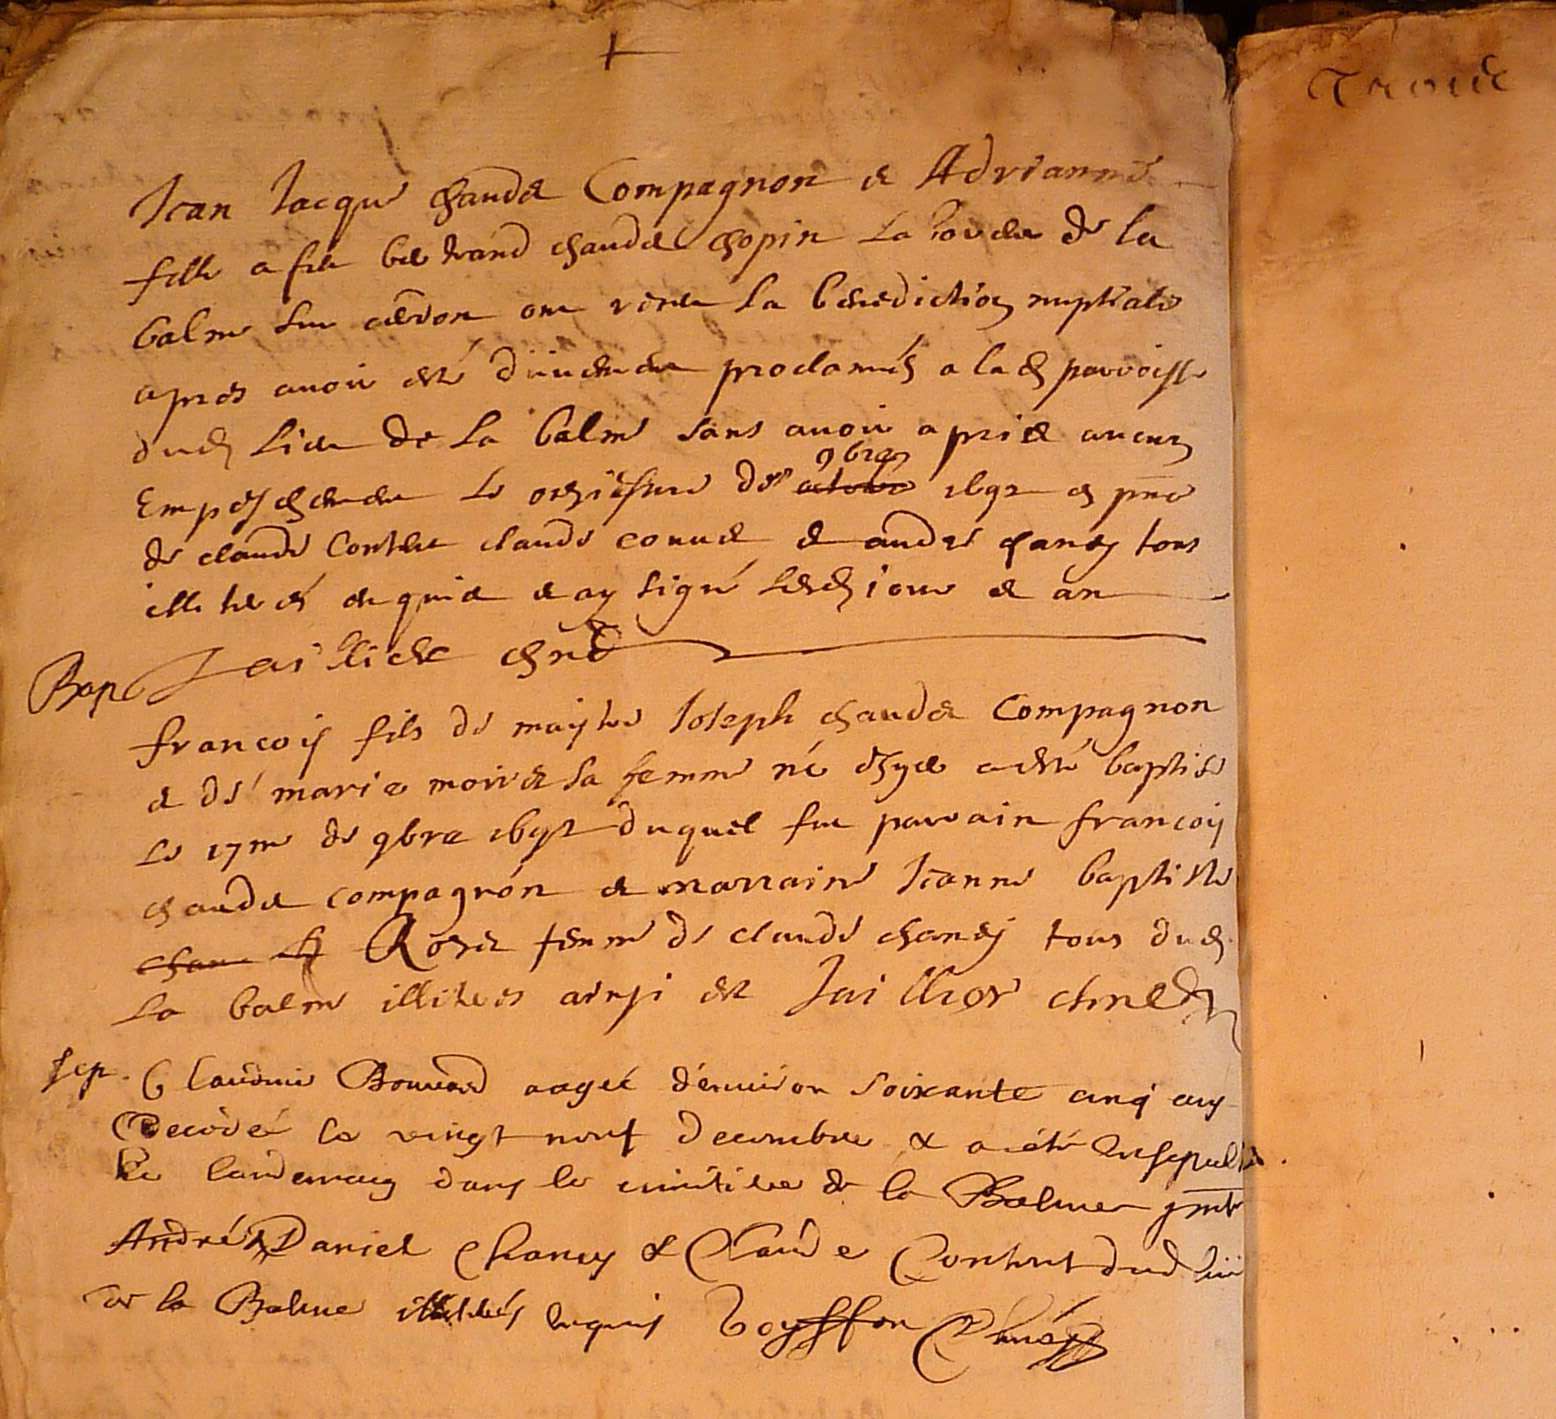 Jean Jacque chaudet Compagnon et Adrianne
fille a feu bertrand chaudet chopin de la
balme sur cerdon ont receu la benediction nuptiale
apres avoir esté düement proclamés a la parroisse
dud lieu de la balme sans avoir apris aucun
Empeschement le 9bre octobre 1692 en pnce
de claude Contet claude et andre chaney tous
illiterés enquis et ay signé lesd jour et an
Bap
francois fils de maistre Joseph chaudet Compagnon
et de marie moiret sa femme né et a esté baptisé
le 17me de 9bre 1692 duquel fut parrain francois
chaudet compagnon et marraine Jeanne baptiste
Rozet femme de claude chaney tous dud
la balme illiteres ainsi est Jaillior
sep. Claudine Bonnard aagée d'environ soixante cinq ans
Decedée le vingt neuf decembre et a été ensepulturée
le landemain dans le cimitiere de la Balme pnts
André Daniel Chaney & Claude Contet dud lieu
de la Balme illiterés enquis